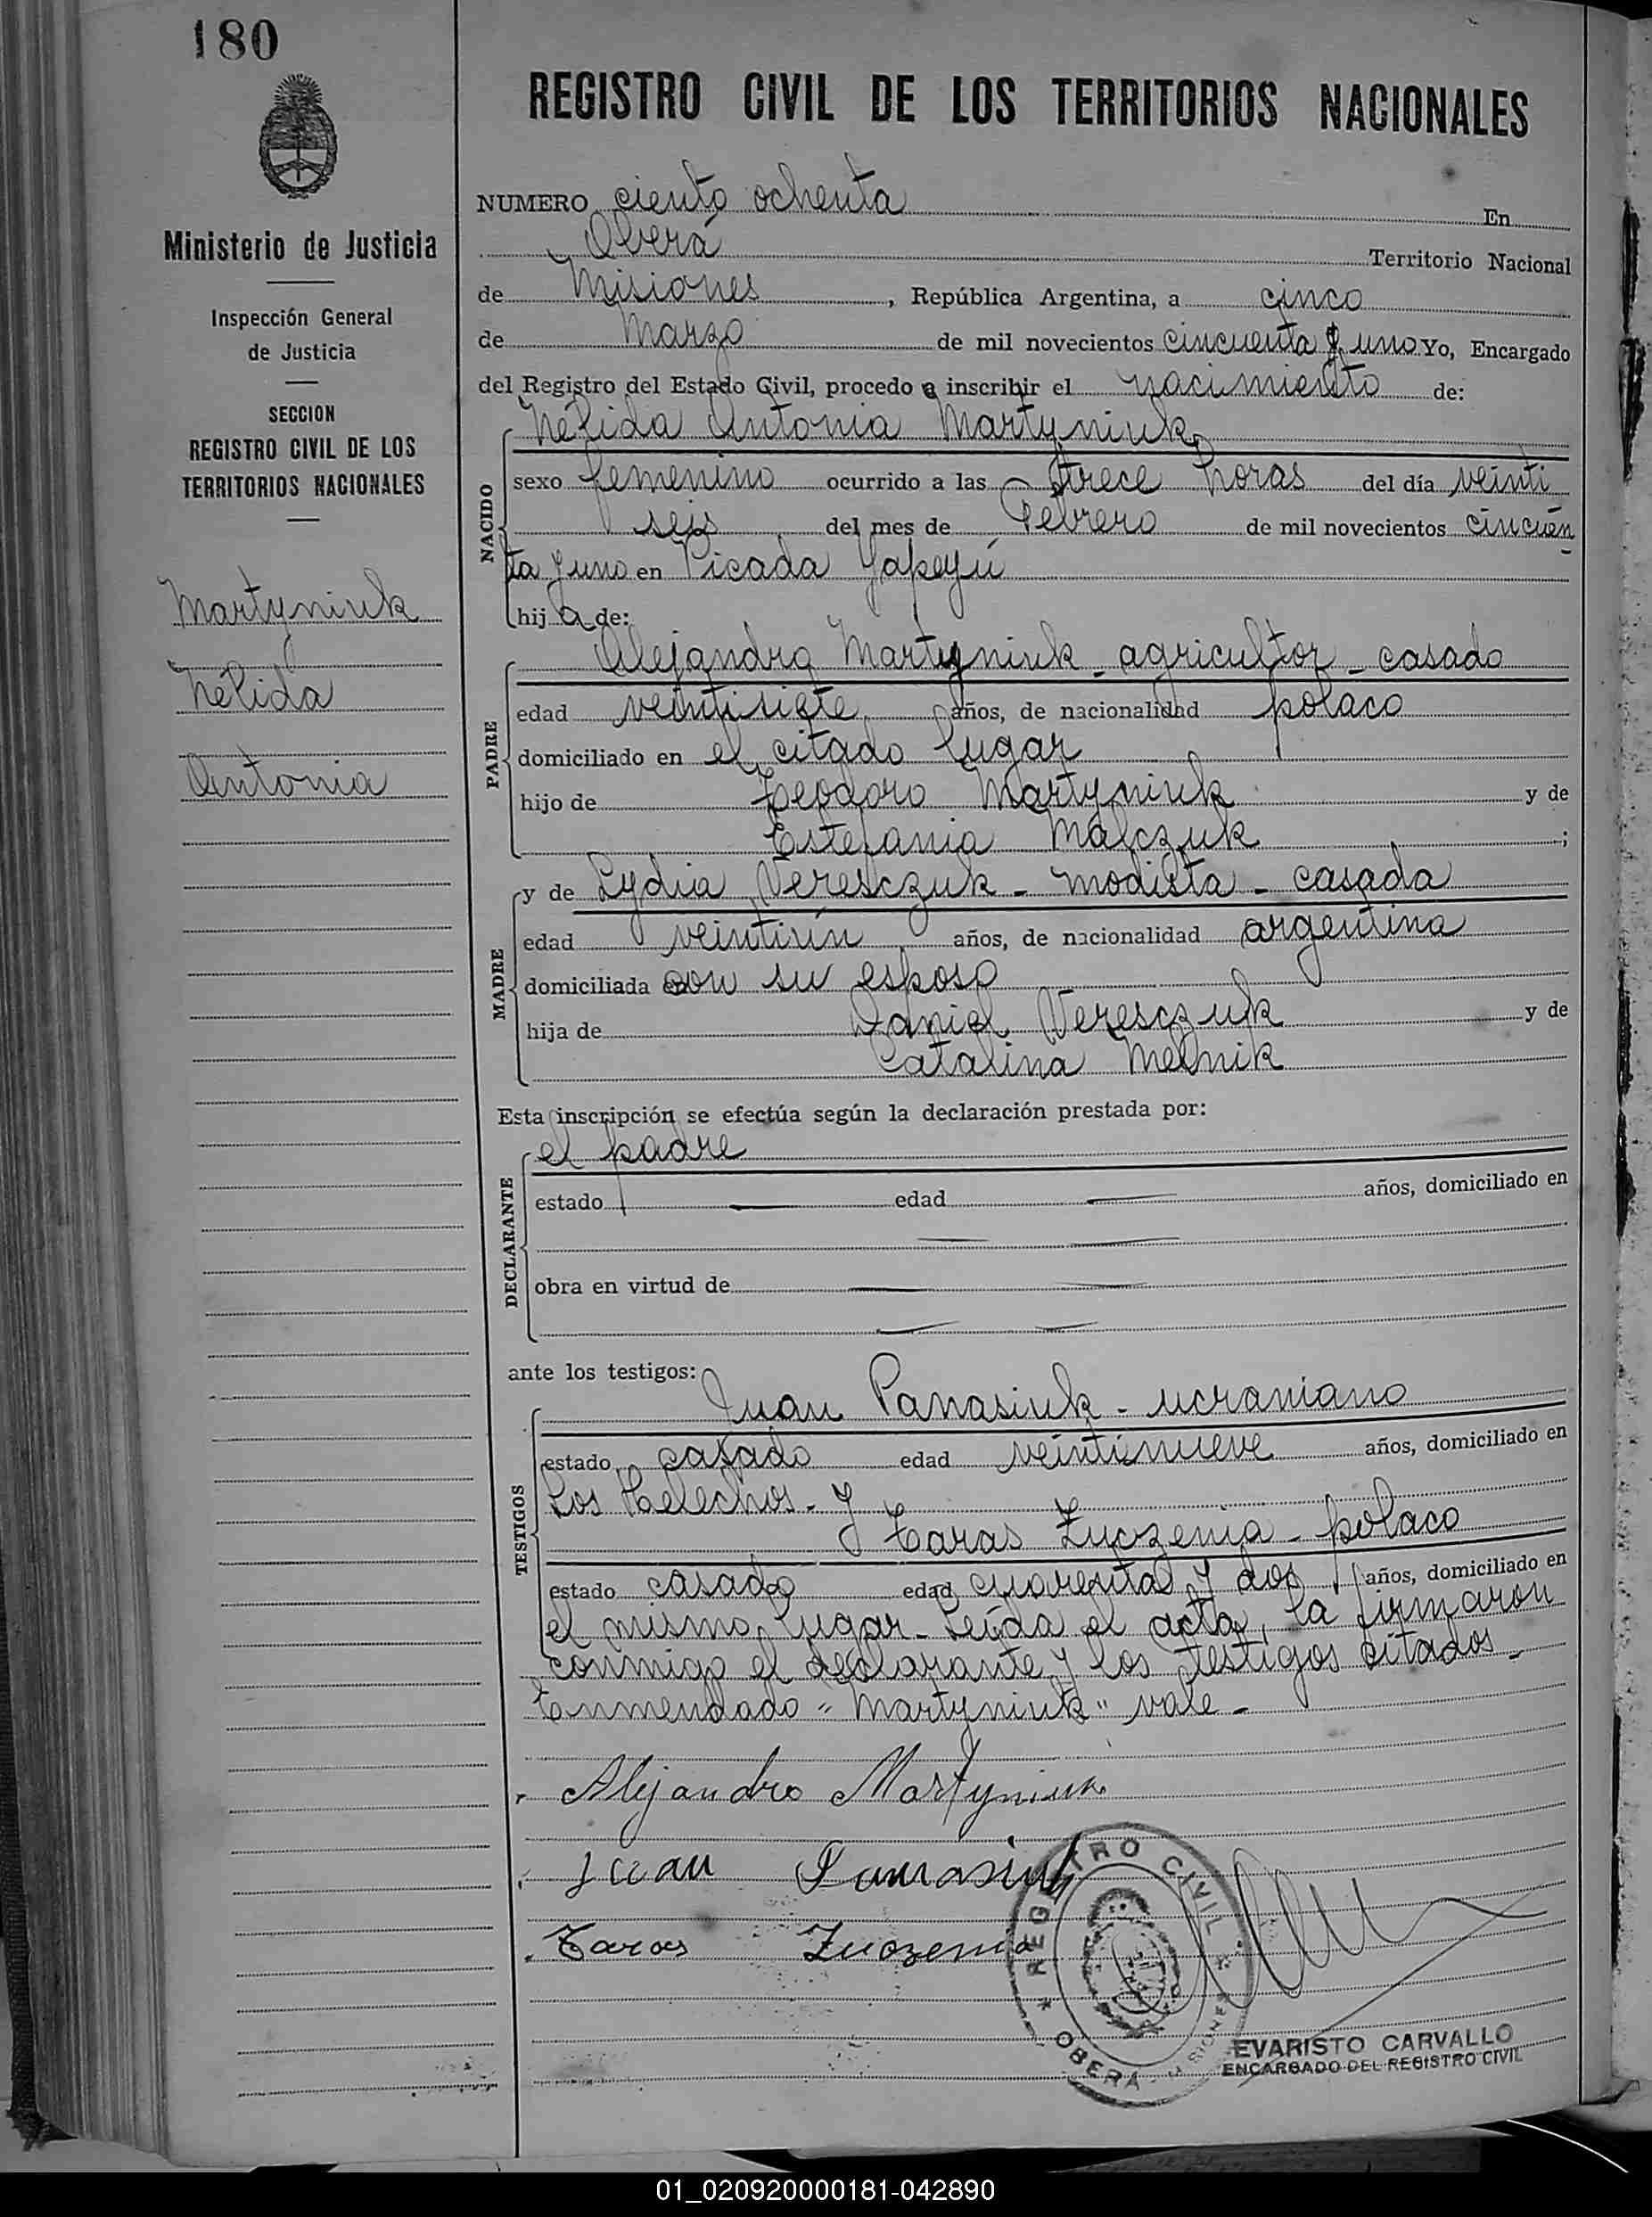 180
REGISTRO CIVIL DE LOS TERRITORIOS NACIONALES
Ministerio de Justicia
Inspección General
de Justicia
SECCION
REGISTRO CIVIL DE LOS
TERRITORIOS NACIONALES
Martyniuk
Nélida
Antonia
NUMERO ciento ochenta En
Oberá Territorio Nacional
de Misiones, República Argentina, a cinco
de Marzo de mil novecientos cincuenta y uno Yo, Encargado
del Registro del Estado Civil, procedo a inscribir el nacimiento de:
NACIDO
Nélida Antonia Martyniuk
sexo femenino ocurrido a las trece horas del día veinti
seis del mes de Febrero de mil novecientos cincuen
ta y uno en Picada Yapeyú
hija de:
PADRE
Alejandro Martyniuk - agricultor - casado
edad veintisiete años, de nacionalidad polaco
domiciliado en el citado lugar
hijo de Teodoro Martyniuk y de
Estefania Malczuk;
MADRE
y de Lydia Veresczuk - modista - casada
edad veintiún años, de nacionalidad argentina
domiciliada con su esposo
hija de Daniel Veresczuk y de
Catalina Melnik
Esta inscripción se efectúa según la declaración prestada por:
DECLARANTE
el padre
estado edad años, domiciliado en
obra en virtud de
ante los testigos:
TESTIGOS
Juan Panasiuk - ucraniano
estado casado edad veintinueve años, domiciliado en
Los Helechos - y
Taras Zuczenia - polaco
estado casado edad cuarenta y dos años, domiciliado en
el mismo lugar - Leída el acta, la firmaron
conmigo el declarante y los testigos citados -
Enmendado " Martyniuk " vale -
Alejandro Martyniuk
Juan Panasiuk
Taras Zuczenia
REGISTRO CIVIL
OBERA - MISIONES
EVARISTO CARVALLO
ENCARGADO DEL REGISTRO CIVIL
01_020920000181-042890